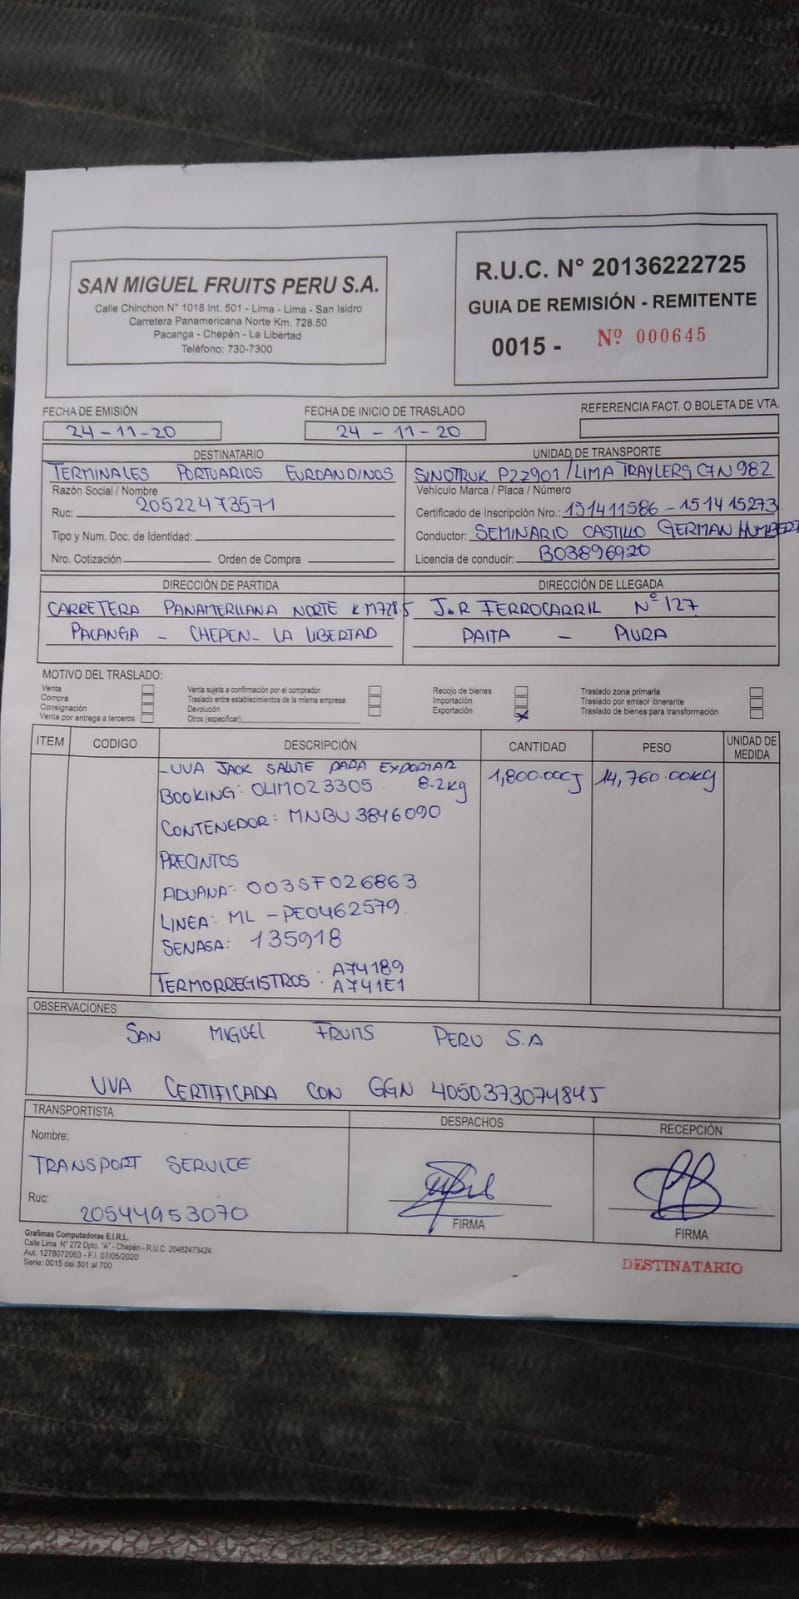 SAN MIGUEL FRUITS PERU S.A.
Calle Chinchon N° 1018 Int. 501 - Lima - Lima - San Isidro
Carretera Panamericana Norte Km. 728.50
Pacanga - Chepén - La Libertad
Teléfono: 730-7300
R.U.C. N° 20136222725
GUIA DE REMISIÓN - REMITENTE
0015 - Nº 000645
FECHA DE EMISIÓN
24-11-20
FECHA DE INICIO DE TRASLADO
24 - 11 - 20
REFERENCIA FACT. O BOLETA DE VTA.
DESTINATARIO
TERMINALES PORTUARIOS EUROANDINOS
Razón Social / Nombre
Ruc: 20522473571
Tipo y Num. Doc. de Identidad:
Nro. Cotización Orden de Compra
UNIDAD DE TRANSPORTE
SINOTRUK P2Z901 / LIMA TRAYLERS C7N 982
Vehículo Marca / Placa / Número
Certificado de Inscripción Nro.: 151411586 - 151415273
Conductor: SEMINARIO CASTILLO GERMAN HUMBERT
Licencia de conducir: B03896920
DIRECCIÓN DE PARTIDA
CARRETERA PANAMERICANA NORTE KM728.5
PACANGA - CHEPEN - LA LIBERTAD
DIRECCIÓN DE LLEGADA
J.R FERROCARRIL Nº 127
PAITA - PIURA
MOTIVO DEL TRASLADO:
Venta
Compra
Consignación
Venta por entrega a terceros
Venta sujeta a confirmación por el comprador
Traslado entre establecimientos de la misma empresa
Devolución
Otros (especificar)
Recojo de bienes
Importación
Exportación X
Traslado zona primaria
Traslado por emisor itinerante
Traslado de bienes para transformación
ITEM CODIGO DESCRIPCIÓN CANTIDAD PESO UNIDAD DE MEDIDA
- UVA JACK SALUTE PARA EXPORTAR 1,800.00CJ 14,760.00KG
BOOKING: OLIM023305 8.2kg
CONTENEDOR: MNBU 3846090
PRECINTOS
ADUANA: 003SF026863
LINEA: ML - PE0462579
SENASA: 135918
TERMORREGISTROS : A74189
: A741E1
OBSERVACIONES
SAN MIGUEL FRUITS PERU S.A
UVA CERTIFICADA CON GGN 4050373074845
TRANSPORTISTA
Nombre:
TRANSPORT SERVICE
Ruc: 20544953070
DESPACHOS
FIRMA
RECEPCIÓN
FIRMA
Grafimas Computadoras E.I.R.L.
Calle Lima N° 272 Dpto. "A" - Chepén - R.U.C. 20482473424
Aut. 1278072063 - F.I. 07/05/2020
Serie: 0015 del 301 al 700
DESTINATARIO